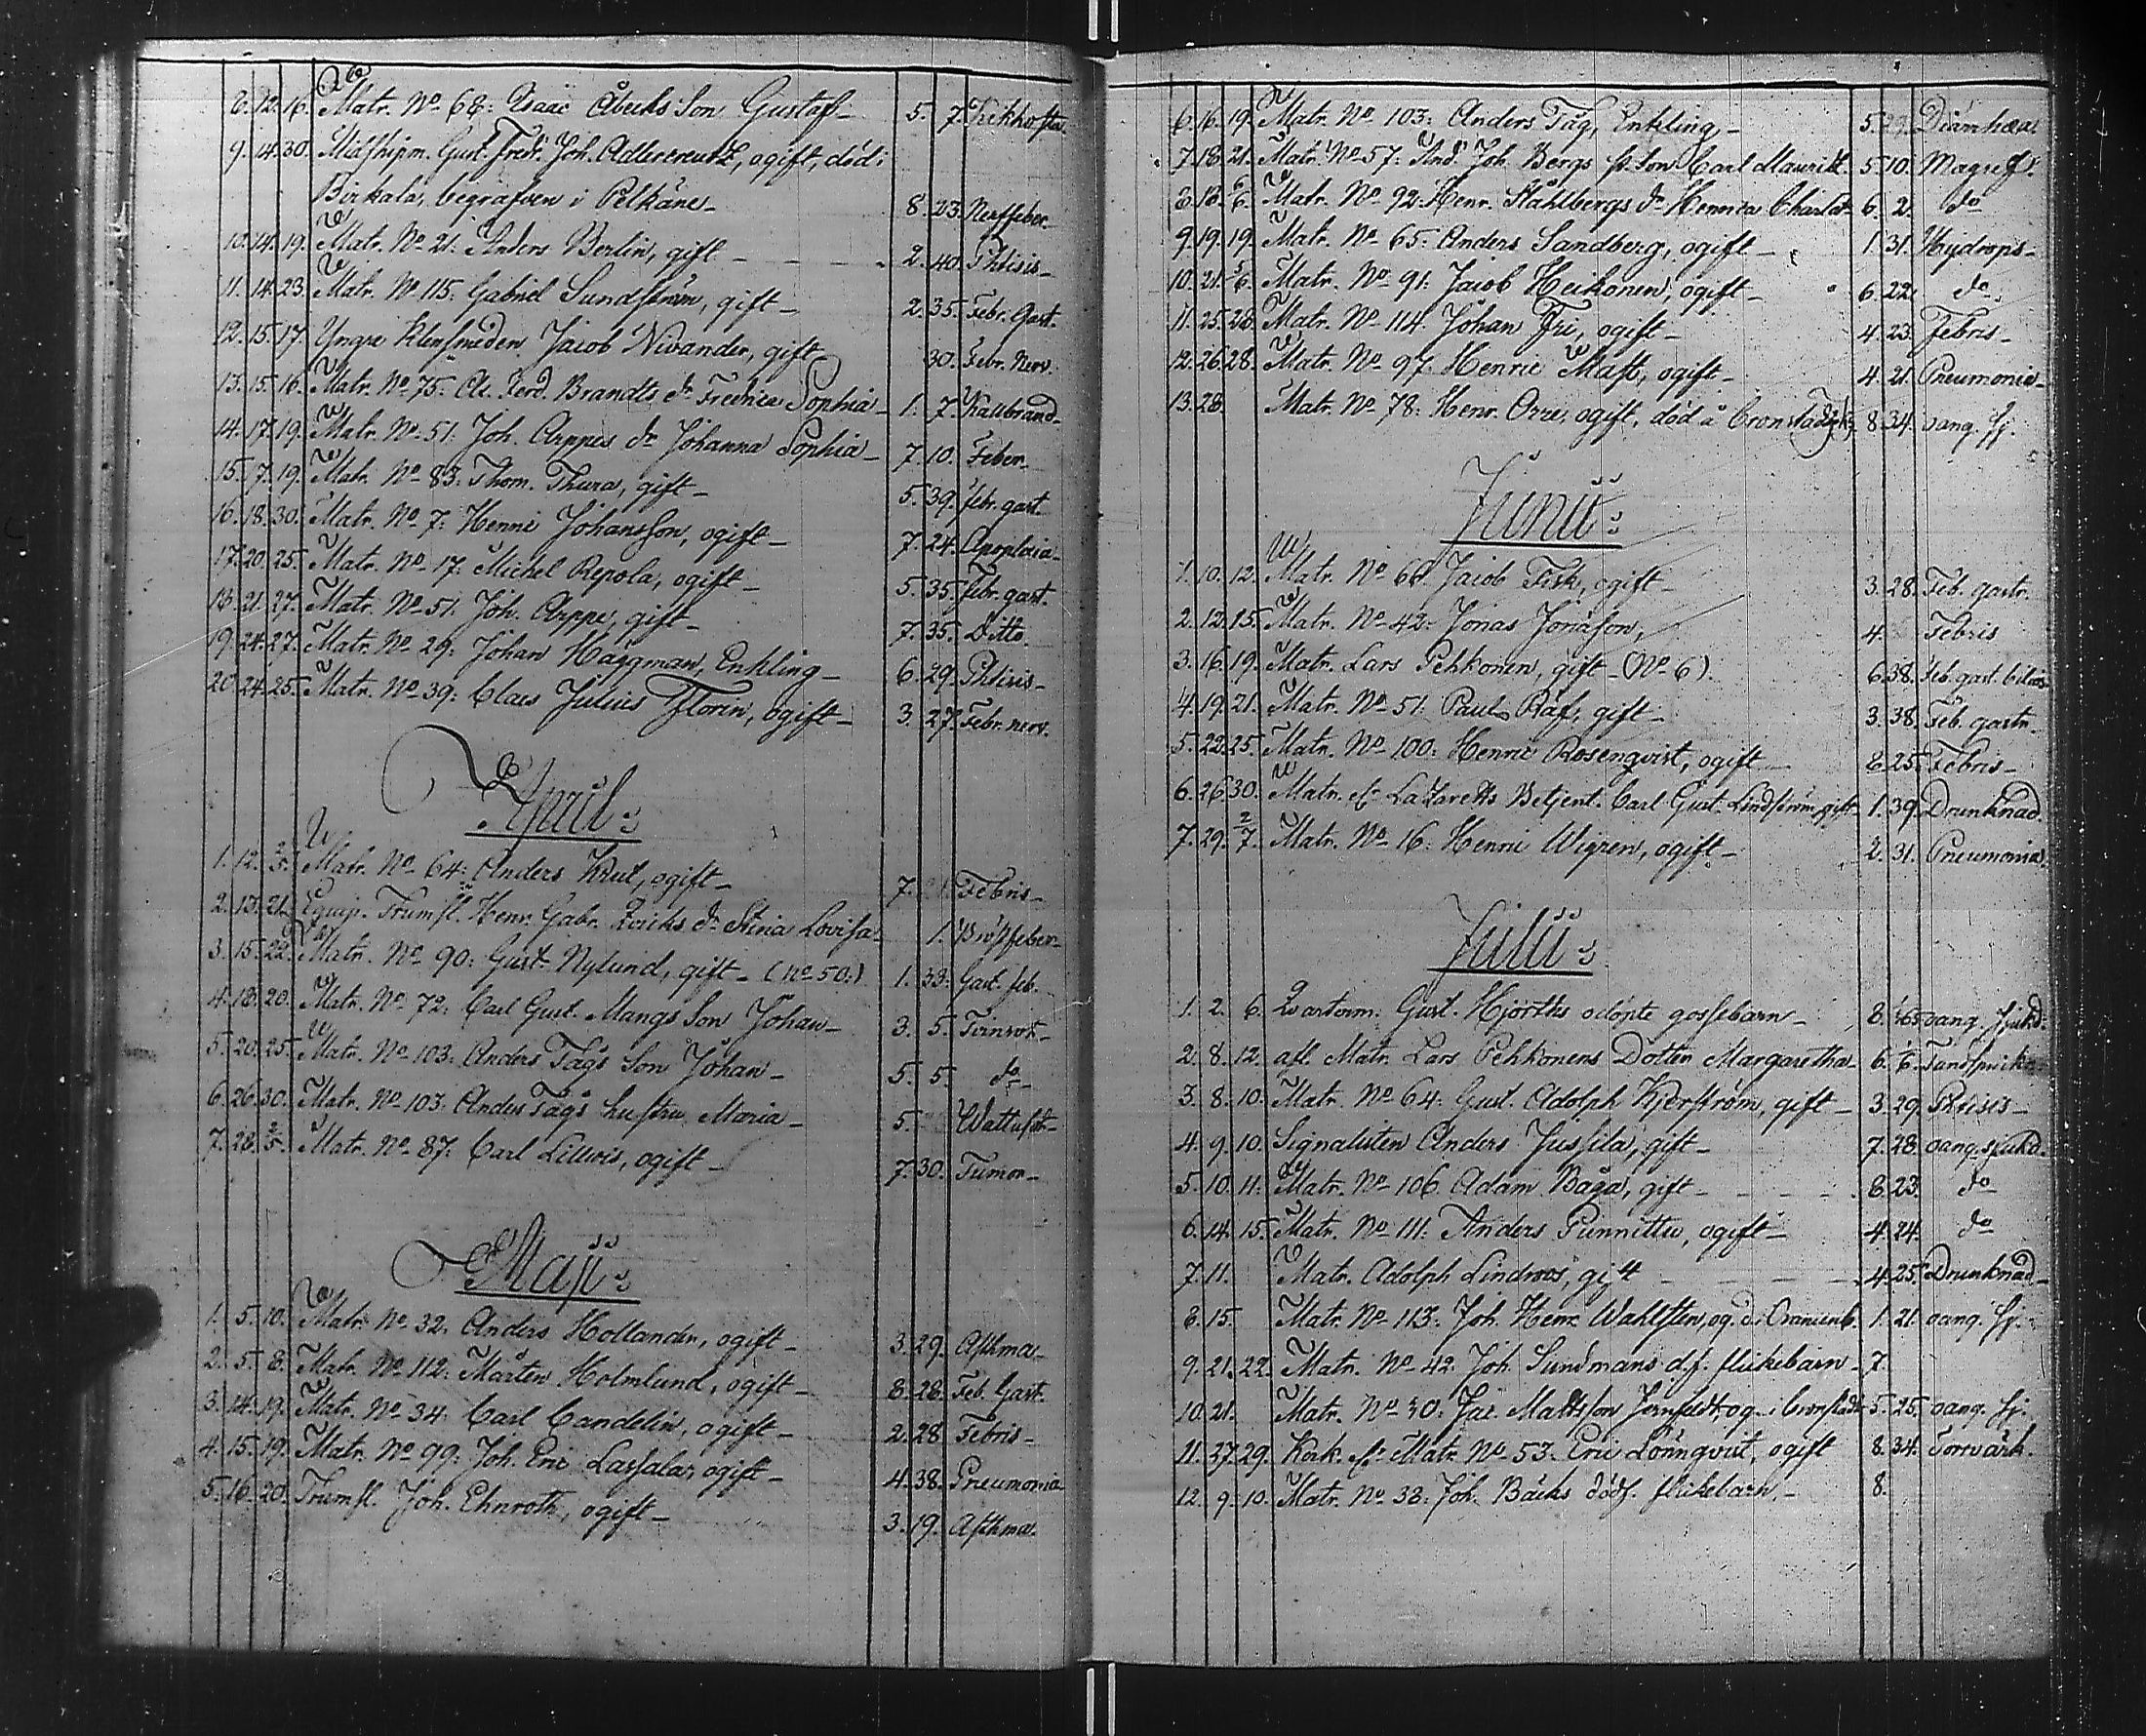 8. 12. 16. Matr. No 68: Isaac Åbecks Son Gustaf 5. 7. Kikhosta
9. 14. 30. Midshipm. Gust. Fredr. Joh. Adlercreutz, ogift, död i
Birkala, begrafven i Pelkäne 8. 23. Nerffeber
10. 14. 19. Matr. No 21: Anders Berlin, gift 2. 40. Phtisis
11. 14. 23. Matr. No 115: Gabriel Sundström, gift 2. 35. Febr. Gast.
12. 15. 17. Yngre Klensmeden Jacob Nivander, gift 30. Febr. Nerv.
13. 15. 16. Matr. No 75: Ferd. Brandts dr Fredrica Sophia 1. 7. Kallbrand
14. 17. 19. Matr. No 51: Joh. Arppes dr Johanna Sophia 7. 10. Feber
15. 17. 19. Matr. No 83: Thom. Thura, gift 5. 39. febr. gast.
16. 18. 30. Matr. No 7: Henric Johansson, ogift 7. 24. Apoplexia
17. 20. 25. Matr. No 17: Michel Repola, ogift 5. 35. Febr. gast.
18. 21. 27. Matr. No 51. Joh. Arppe, gift 7. 35. Ditto
19. 24. 27. Matr. No 29: Johan Häggman, Enkling 6. 29. Phtisis
20. 24. 25. Matr. No 39: Claes Julius Florin, ogift 3. 27. Febr. nerv.
April:
1. 12. 2/5. Matr. No 64: Anders Krut, ogift 7. Febris
2. 13. 21. Equip. Trumsl. Henr. Gabr. Qvicks dr Stina Lovisa 1. Bröstfeber
3. 15. 22. Matr. No 90: Gust. Nylund, gift (No 50:) 1. 33. Gast. feb.
4. 18. 20. Matr. No 72: Carl Gust. Mangs Son Johan 3. 5. Tvinsot
5. 20. 25. Matr. No 103: Anders Tågs Son Johan 5. 5. do
6. 26. 30. Matr. No 103: Anders Tågs hustru Maria 5. Wattusot
7. 28. 2/5. Matr. No 87: Carl Lillvis, ogift 7. 30. Tumor
Maji:
1. 5. 10. Matr. No 32: Anders Hollander, ogift 3. 29. Asthma
2. 5. 8. Matr. No 112: Mårten Holmlund, ogift 8. 28. Feb. Gast.
3. 14. 19. Matr. No 34: Carl Candelin, ogift 2. 28. Febris
4. 15. 19. Matr. No 99: Joh. Eric Lassalas, ogift 4. 38. Pneumonia
5. 16. 20. Trumsl. Joh. Ehnroth, ogift 3. 19. Asthma
6. 16. 19. Matr. No 103: Anders Tåg, Enkling 5. Diarrhœa
7. 18. 21. Matr. No 57: And. Joh. Bergs st. Son Carl Mauritz 5. 10. Magref
8. 18. 6/6. Matr. No 92: Henr. Ståhlbergs dr Henrica Charlot. 6. 2. do
9. 19. 19. Matr. No 65: Anders Sandberg, ogift 1. 31. Hydrops
10. 21. 5/6. Matr. No 91: Jacob Heikonen, ogift 6. 22. do
11. 25. 28. Matr. No 114: Johan Fri, ogift 4. 23. Febris
12. 26. 28. Matr. No 97. Henric Mast, ogift 4. 21. Pneumonia
13. 28. Matr. No 78: Henr. Orre, ogift, död å Cronstadt 8. 34. oang. sj.
Junii:
1. 10. 12. Matr. No 66. Jacob Fisk, ogift 3. 28. Feb. gastr.
2. 12. 15. Matr. No 42: Jonas Jonason, 4. Febris
3. 16. 19. Matr. Lars Pehkonen, gift (No 6). 6. 38. feb. gast. bilios
4. 19. 21. Matr. No 51. Paul Räf, gift 3. 38. Feb. gastr.
5. 22. 25. Matr. No 100: Henric Rosenqvist, ogift 8. 25. Febris
6. 26. 30. Matr. & Lazaretts Betjent. Carl Gust. Lindström, gift 1. 39. Drunknad
7. 29. 2/7. Matr. No 16: Henric Wigren, ogift 2. 31. Pneumonia
Julii:
1. 2. 6. Qvarterm. Gust. Hjorths odöpte gossebarn 8. oang. sjukd.
2. 8. 12. afl. Matr. Lars Pehkonens Dotter Margaretha 6. Tandsprickn.
3. 8. 10. Matr. No 64: Gust. Adolph Kjerström, gift 3. 29. Phtisis
4. 9. 10. Signalisten Anders Jussila, gift 7. 28. oang. sjukd.
5. 10. 11. Matr. No 106. Adam Båga, gift 8. 23. do
6. 14. 15. Matr. No 111: Anders Punnittu, ogift 4. 24. do
7. 11. Matr. Adolph Lindroos, gift 4. 25. Drunknad
8. 15. Matr. No 113: Joh. Henr. Wahlsten, og. d. i Oranienb. 1. 21. oang. sj.
9. 21. 22. Matr. No 42: Joh. Sundmans d.f. flickebarn 7.
10. 21. Matr. No 30: Jac. Mattsson Jernfeldt, og. i Cronstadt 5. 25. oang. sj.
11. 27. 29. Kock & Matr. No 53: Eric Lönnqvist, ogift 8. 34. Torrvärk.
12. 9. 10. Matr. No 38: Joh. Bäcks dödf. flickebarn 8.